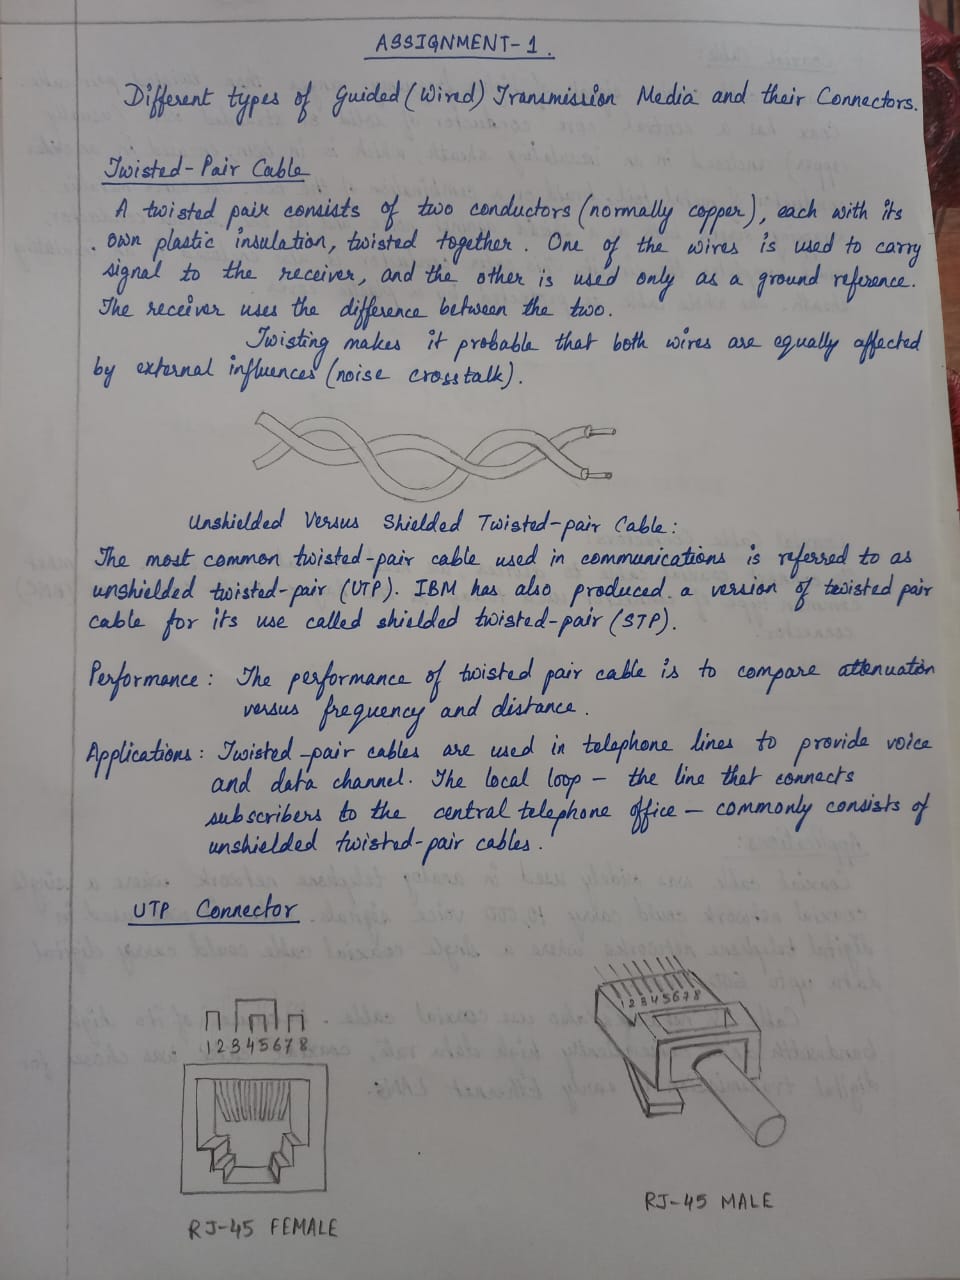 ASSIGNMENT-1.
Different types of Guided (Wired) Transmission Media and their Connectors.
Twisted-Pair Cable
A twisted pair consists of two conductors (normally copper), each with its
own plastic insulation, twisted together. One of the wires is used to carry
signal to the receiver, and the other is used only as a ground reference.
The receiver uses the difference between the two.
Twisting makes it probable that both wires are equally affected
by external influences (noise crosstalk).
Unshielded Versus Shielded Twisted-pair Cable:
The most common twisted-pair cable used in communications is referred to as
unshielded twisted-pair (UTP). IBM has also produced a version of twisted pair
cable for its use called shielded twisted-pair (STP).
Performance: The performance of twisted pair cable is to compare attenuation
versus frequency and distance.
Applications: Twisted-pair cables are used in telephone lines to provide voice
and data channel. The local loop – the line that connects
subscribers to the central telephone office – commonly consists of
unshielded twisted-pair cables.
UTP Connector
12345678
12345678
RJ-45 FEMALE
RJ-45 MALE